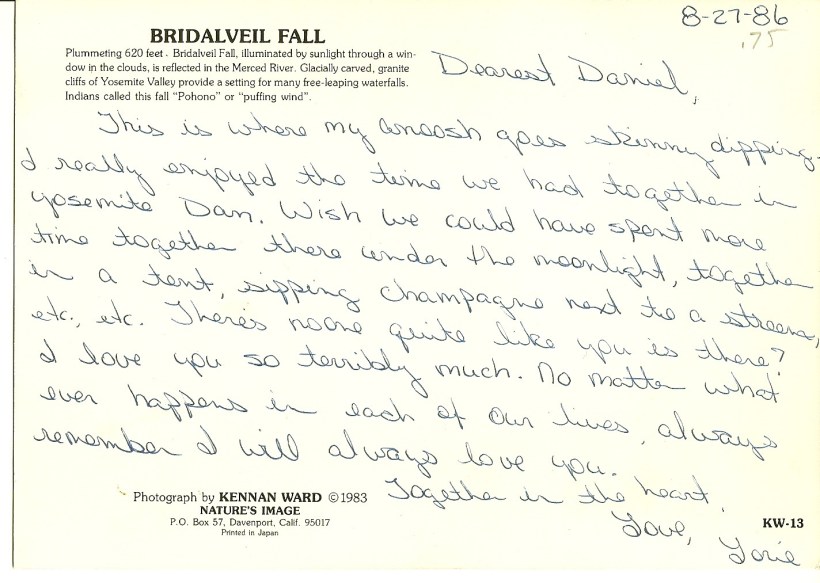 BRIDALVEIL FALL
Plummeting 620 feet. Bridalveil Fall, illuminated by sunlight through a win-
dow in the clouds, is reflected in the Merced River. Glacially carved, granite
cliffs of Yosemite Valley provide a setting for many free-leaping waterfalls.
Indians called this fall "Pohono" or "puffing wind".
8-27-86
.75
Dearest Daniel,
This is where my anoosh goes skinny dipping.
I really enjoyed the time we had together in
Yosemite Dan. Wish we could have spent more
time together there under the moonlight, together
in a tent, sipping champagne next to a stream,
etc., etc. There's noone quite like you is there?
I love you so terribly much. No matter what
ever happens in each of our lives, always
remember I will always love you.
Together in the heart,
Love,
Lorie
Photograph by KENNAN WARD ©1983
NATURE'S IMAGE
P.O. Box 57, Davenport, Calif. 95017
Printed in Japan
KW-13